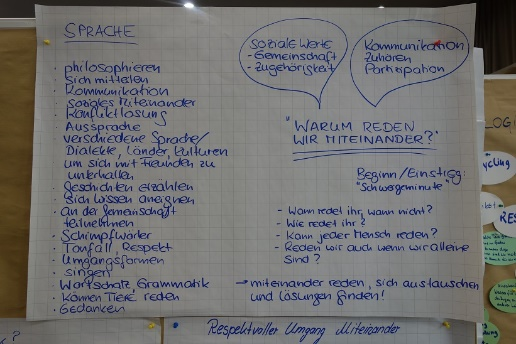 SPRACHE
· philosophieren
· sich mitteilen
· Kommunikation
· soziales Miteinander
· Konfliktlösung
· Aussprache
· verschiedene Sprache/
Dialekte, Länder, Kulturen
· um sich mit Freunden zu
unterhalten
· Geschichten erzählen
· sich Wissen aneignen
· an der Gemeinschaft
teilnehmen
· Schimpfwörter
· Tonfall, Respekt
· Umgangsformen
· singen
· Wortschatz, Grammatik
· Können Tiere reden
· Gedanken
soziale Werte
- Gemeinschaft
- Zugehörigkeit
Kommunikation
Zuhören
Partizipation
"WARUM REDEN
WIR MITEINANDER?"
Beginn/Einstieg:
"Schweigeminute"
- Wann redet ihr, wann nicht?
- Wie redet ihr?
- Kann jeder Mensch reden?
- Reden wir auch wenn wir alleine
sind?
→ miteinander reden, sich austauschen
und Lösungen finden!
Respektvoller Umgang Miteinander